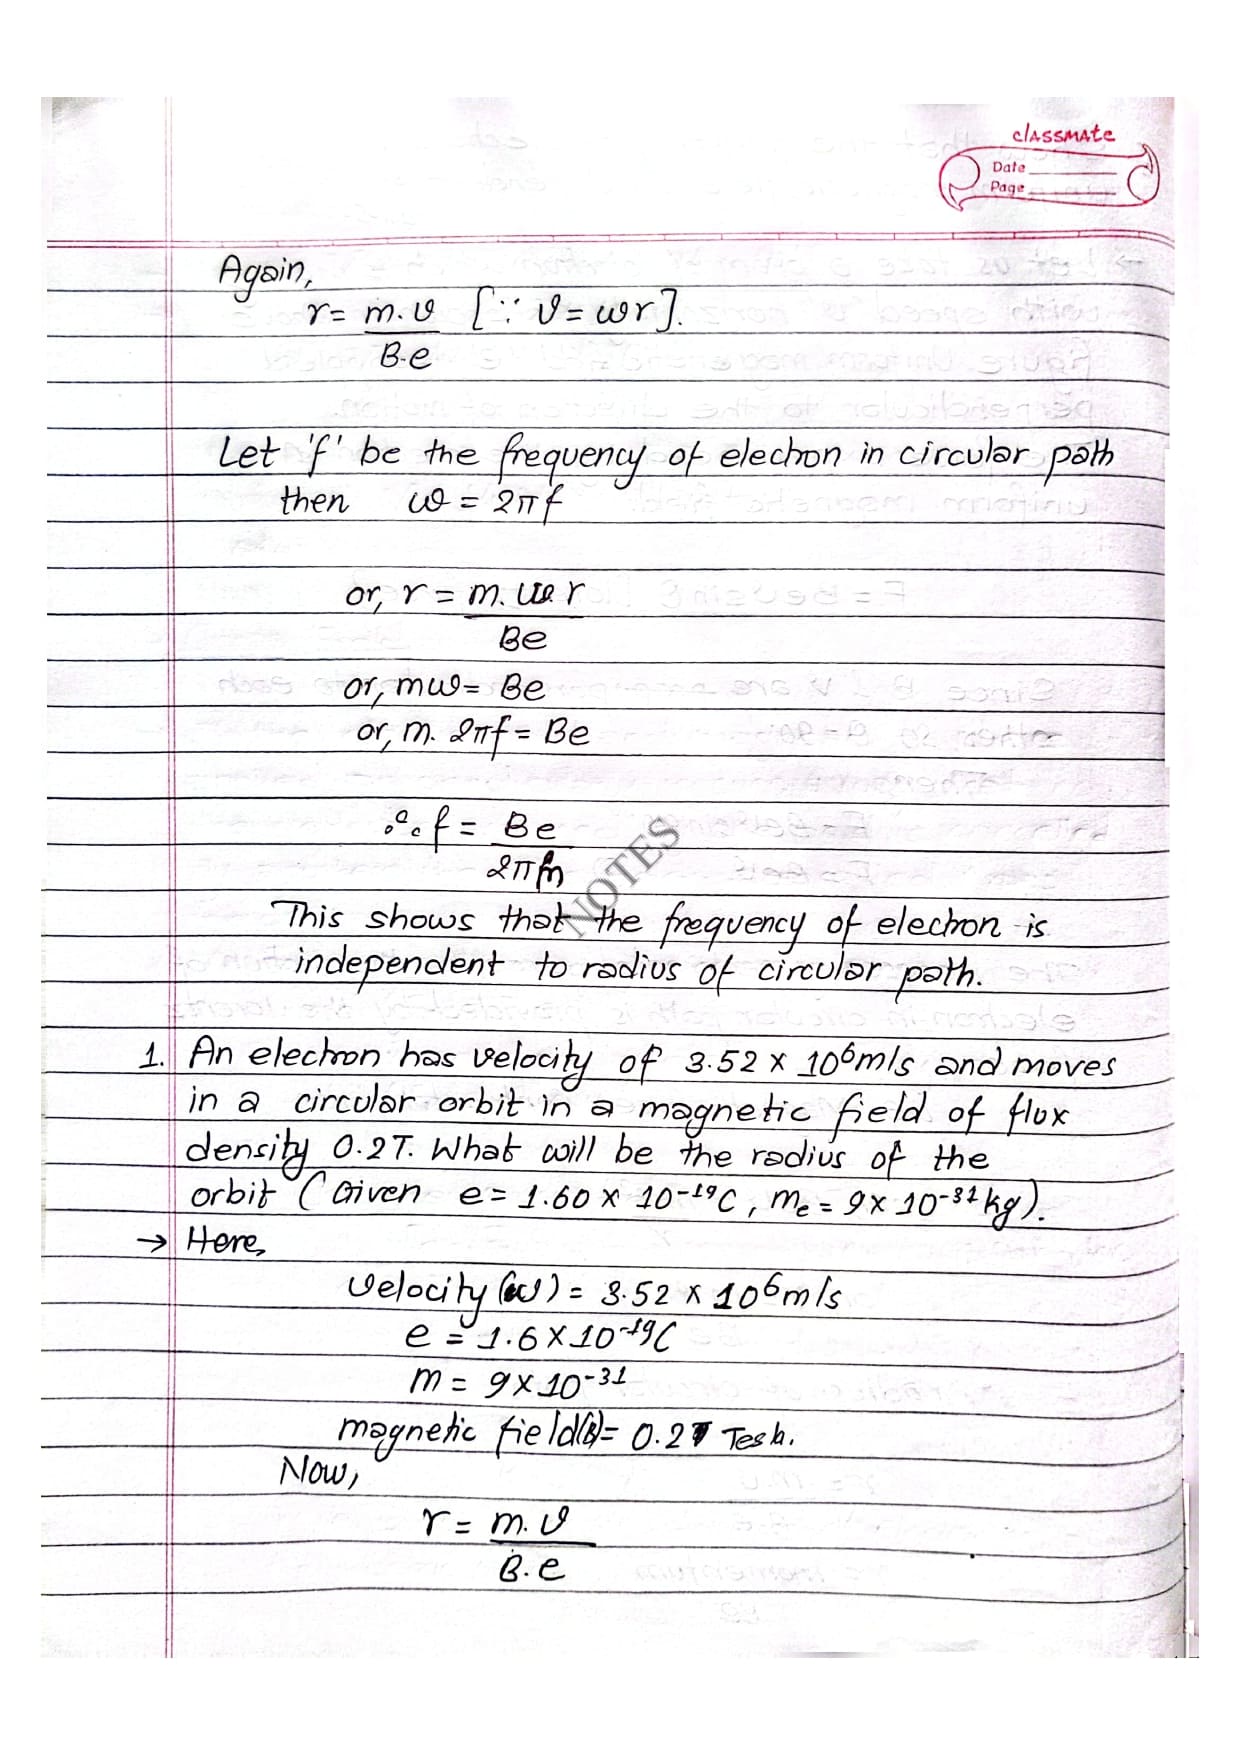 classmate
Date
Page
Again,
r = m.v [∵ v = ωr].
B.e
Let 'f' be the frequency of electron in circular path
then ω = 2πf
or, r = m. ω r
Be
or, mω = Be
or, m. 2πf = Be
∴ f = Be
2πm
NOTES
This shows that the frequency of electron is
independent to radius of circular path.
1. An electron has velocity of 3.52 × 10⁶m/s and moves
in a circular orbit in a magnetic field of flux
density 0.2T. What will be the radius of the
orbit (Given e = 1.60 × 10⁻¹⁹C, mₑ = 9 × 10⁻³¹kg).
→ Here,
velocity (v) = 3.52 × 10⁶m/s
e = 1.6 × 10⁻¹⁹C
m = 9 × 10⁻³¹
magnetic field(B) = 0.2 Tesla.
Now,
r = m.v
B.e